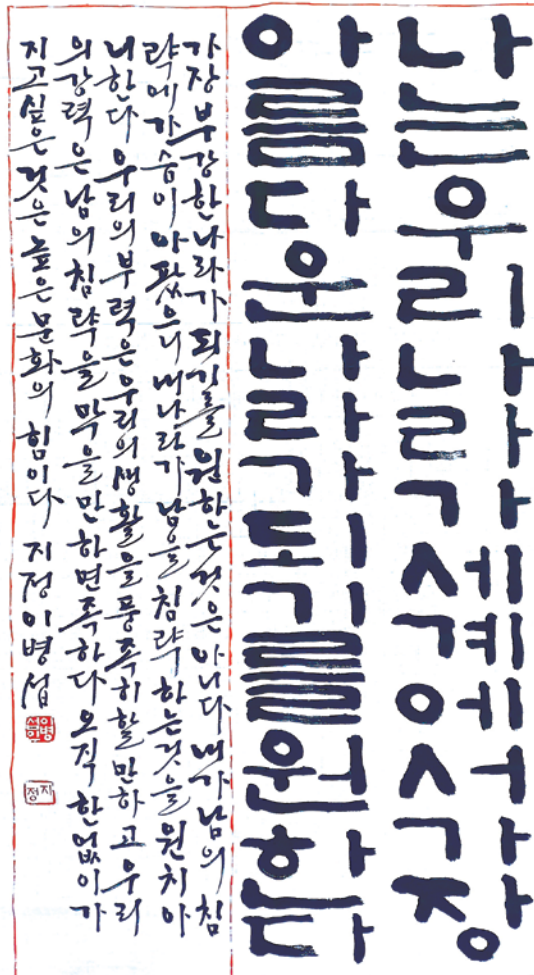 나는우리나라가세계에서가장
아름다운나라가되기를원한다
가장부강한나라가되기를원하는것은아니다내가남의침
략에가슴이아팠으니내나라가남을침략하는것을원치아
니한다우리의부력은우리의생활을풍족히할만하고우리
의강력은남의침략을막을만하면족하다오직한없이가
지고싶은것은높은문화의힘이다 지정이병섭
이병섭인
지정